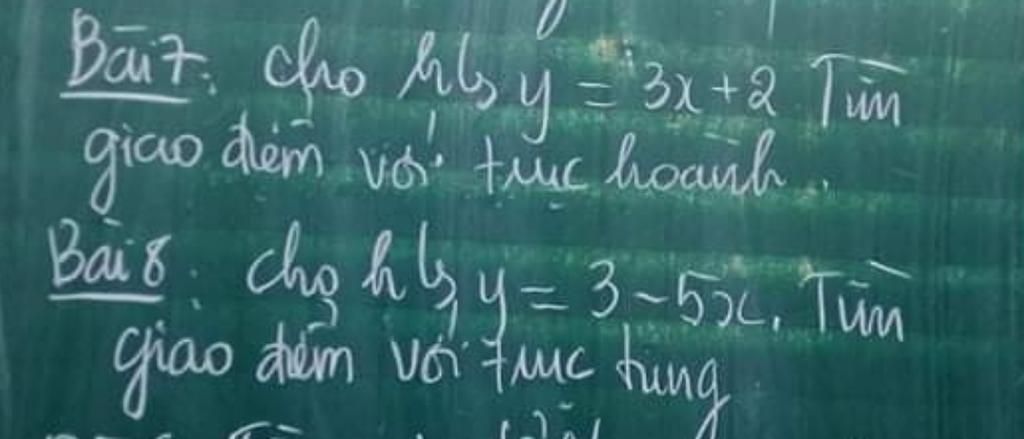 Bài 7: Cho hs y = 3x + 2 Tìm
giao điểm với trục hoành.
Bài 8: Cho hs y = 3 - 5x. Tìm
giao điểm với trục tung